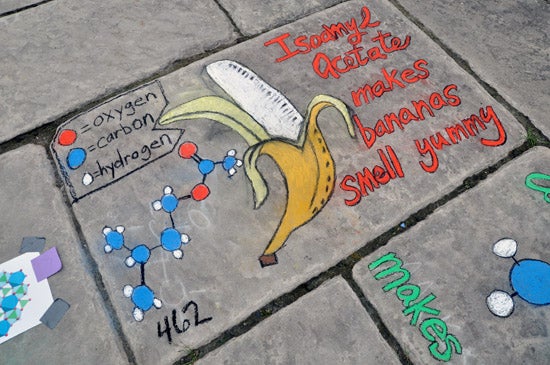 Isoamyl
Acetate
makes
bananas
smell yummy
=oxygen
=carbon
=hydrogen
462
makes